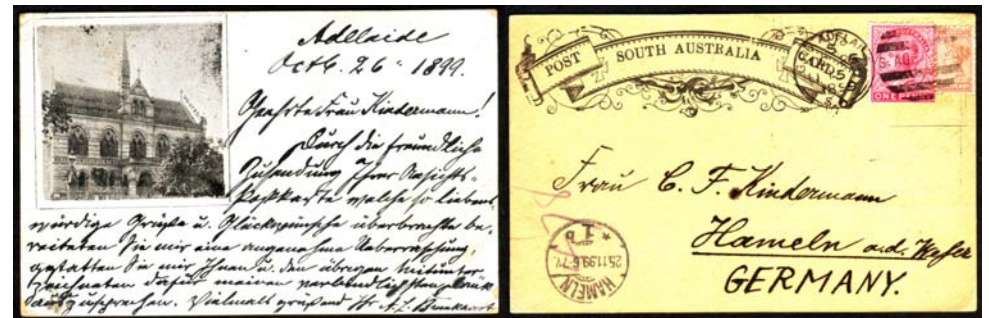 Adelaide
Octb. 26. 1899.
Geehrte Frau Kindermann!
Durch die freundliche
Zusendung Ihrer Ansichts-
Postkarte welche so liebens
würdige Grüße u. Glückwünsche überbrachte be-
reiteten Sie mir eine angenehme Ueberraschung,
gestatten Sie mir Ihnen u. den übrigen mitunter-
zeichneten dafür meinen verbindlichsten Dank
auszusprechen. Vielmals grüßend Ihr A. L.
POST SOUTH AUSTRALIA CARD
ONE PENNY
Frau C. F. Kindermann
Hameln a.d. Weser
GERMANY.
HAMELN
25.11.99.